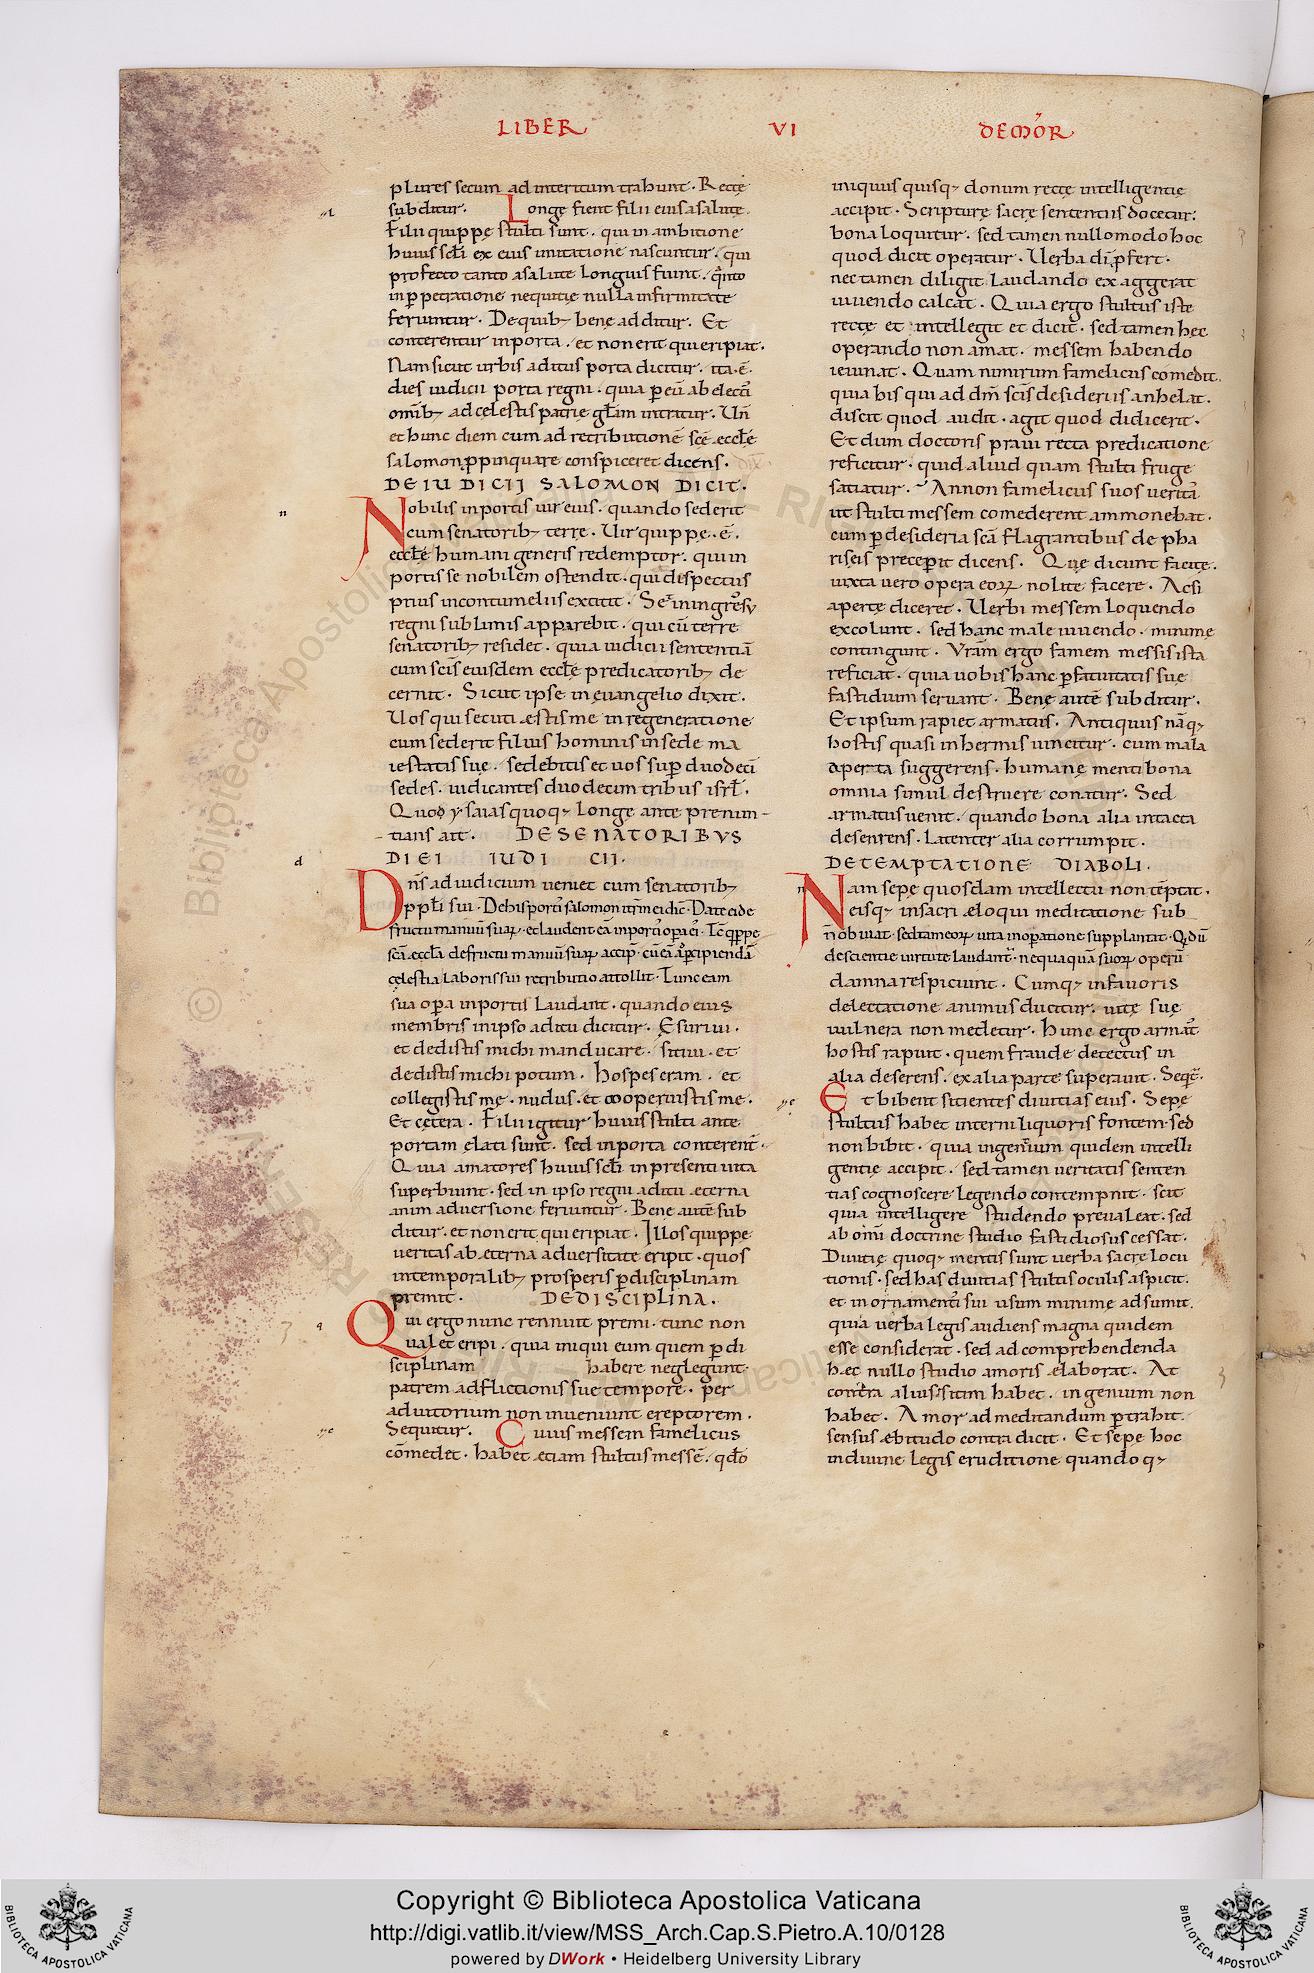 LIBER VI DE MOR̄
plures secum ad interitum trahunt. Recte
subditur. Longe fient filii eius a salute.
Filii quippe stulti sunt. qui in ambitione
huius sc̄li ex eius imitatione nascuntur. qui
profecto tanto a salute longius fiunt. q̄nto
in ꝑpetratione nequitie nulla infirmitate
feriuntur. De quib; bene additur. Et
conterentur in porta. et non erit qui eripiat.
Nam sicut urbis aditus porta dicitur. ita .ē.
dies iudicii porta regni. quia ꝑ eū ab electi
om̄ib; ad celestis patrie gl̄am intratur. Un̄
et hunc diem cum ad retributionē sc̄e eccl̄e
salomon ꝓpinquare conspiceret dicens.
DE IUDICII SALOMON DICIT.
Nobilis in portis uir eius. quando sederit
cum senatorib; terre. Uir quippe .ē.
eccl̄e humani generis redemptor. qui in
portis se nobilem ostendit. qui despectus
prius in contumeliis extitit. Se in ingressu
regni sublimis apparebit. qui cū terre
senatorib; residet. quia iudicii sententiā
cum sc̄is eiusdem eccl̄e predicatorib; de
cernit. Sicut ipse in euangelio dixit.
Uos qui secuti estis me in regeneratione
cum sederit filius hominis in sede ma
iestatis sue. sedebitis et uos sup̄ duodeci
sedes. iudicantes duodecim tribus isrl̄.
Quod ysaias quoq; longe ante prenun-
tians ait. DE SENATORIBVS
DIEI IUDICII.
Dn̄s ad iudicium ueniet cum senatorib;
ppl̄i sui. De his porti salomon itr̄m ei dic̄. Date ei de
fructu manuū suaꝝ. et laudent eā in porti oꝑa ei. Tc̄ q̄ppe
sc̄a eccl̄a de fructu manuū suaꝝ accip̄. cū eā a ꝑcipiendā
celestia laboris sui retributio attollit. Tunc eam
sua oꝑa in portis laudant. quando eius
membris in ipso aditu dicitur. Esuriui.
et dedistis michi manducare. sitiui. et
dedistis michi potum. hospes eram. et
collegistis me. nudus. et cooperuistis me.
Et cetera. Filii igitur huius stulti ante
portam elati sunt. sed in porta conterent̄.
Quia amatores huius sc̄li in presenti uita
superbiunt. sed in ipso regni aditu eterna
animaduersione feriuntur. Bene autē sub
ditur. et non erit qui eripiat. Illos quippe
ueritas ab eterna aduersitate eripit. quos
in temporalib; prosperis ꝑ disciplinam
premit. DE DISCIPLINA.
Qui ergo nunc rennuit premi. tunc non
ualet eripi. quia iniqui eum quem ꝑ di
sciplinam habere neglegunt.
patrem adflictionis sue tempore. per
adiutorium non inueniunt ereptorem.
Sequitur. Cuius messem famelicus
cōmedet. habet etiam stultus messē. qd̄o
iniquus quisq; donum recte intelligentie
accipit. Scripture sacre sententiis docetur.
bona loquitur. sed tamen nullo modo hoc
quod dicit operatur. Uerba dī p̄fert.
nec tamen diligit. laudando exaggerat
uiuendo calcat. Quia ergo stultus iste
recte et intellegit et dicit. sed tamen hec
operando non amat. messem habendo
ieiunat. Quam nimirum famelicus comedit.
quia his qui ad dm̄ sc̄is desideriis anhelat.
discit quod audit. agit quod didicerit.
Et dum doctoris praui recta predicatione
reficitur. quid aliud quam stulti fruge
satiatur. An non famelicus suos uerita
ut stulti messem comederent ammonebat.
cum ꝑ desideria sc̄a flagrantibus de pha
riseis preceꝑit dicens. Que dicunt facite.
iuxta uero opera eoꝝ nolite facere. Ac si
aperte diceret. Uerbi messem loquendo
excolunt. sed hanc male uiuendo. minime
contingunt. Vr̄am ergo famem messis ista
reficiat. quia uobis hanc ꝑ fatuitatis sue
fastidium seruant. Bene autē subditur.
Et ipsum rapiet armatus. Antiquus nāq;
hostis quasi inhermis uincitur. cum mala
aperta suggerens. humane menti bona
omnia simul destruere conatur. Sed
armatus uenit. quando bona alia intacta
deserens. latenter alia corrumpit.
DE TEMPTATIONE DIABOLI.
Nam sepe quosdam intellectu non tēptat.
eisq; in sacri eloqui meditatione sub
n̄ obuiat. sed tam̄ eoꝝ uita in oꝑatione supplantat. Q̄ dū
de scientie uirtute laudant̄. nequaquā suoꝝ operū
damna respiciunt. Cumq; in fauoris
delectatione animus ducitur. uite sue
uulnera non medetur. Hunc ergo armat
hostis rapuit. quem fraude detectus in
alia deserens. ex alia parte superauit. Seqt̄.
Et bibent sitientes diuitias eius. Sepe
stultus habet interni liquoris fontem. sed
non bibit. quia ingenium quidem intelli
gentie accipit. sed tamen ueritatis senten
tias cognoscere legendo contempnit. scit
quia intelligere studendo preualeat. sed
ab omī doctrine studio fastidiosus cessat.
Diuitie quoq; mentis sunt uerba sacre locu
tionis. sed has diuitias stultus oculis aspicit.
et in ornamenti sui usum minime adsumit.
quia uerba legis audiens magna quidem
esse considerat. sed ad comprehendenda
hec nullo studio amoris elaborat. At
contra alius sitim habet. ingenium non
habet. Amor ad meditandum ꝑtrahit.
sensus ebitudo contradicit. Et sepe hoc
in diuine legis eruditione quandoq;
Copyright © Biblioteca Apostolica Vaticana
http://digi.vatlib.it/view/MSS_Arch.Cap.S.Pietro.A.10/0128
powered by DWork • Heidelberg University Library